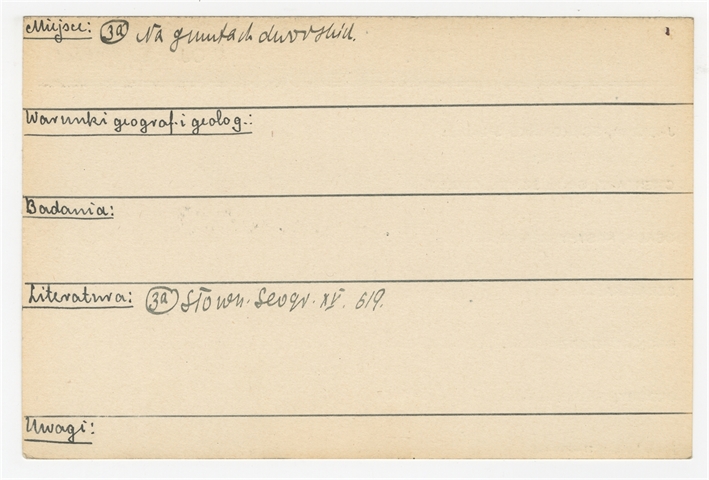 Miejsce: 3a Na gruntach dworskich.
Warunki geograf. i geolog.:
Badania:
Literatura: 3a Słown. Geogr. XV. 619.
Uwagi: